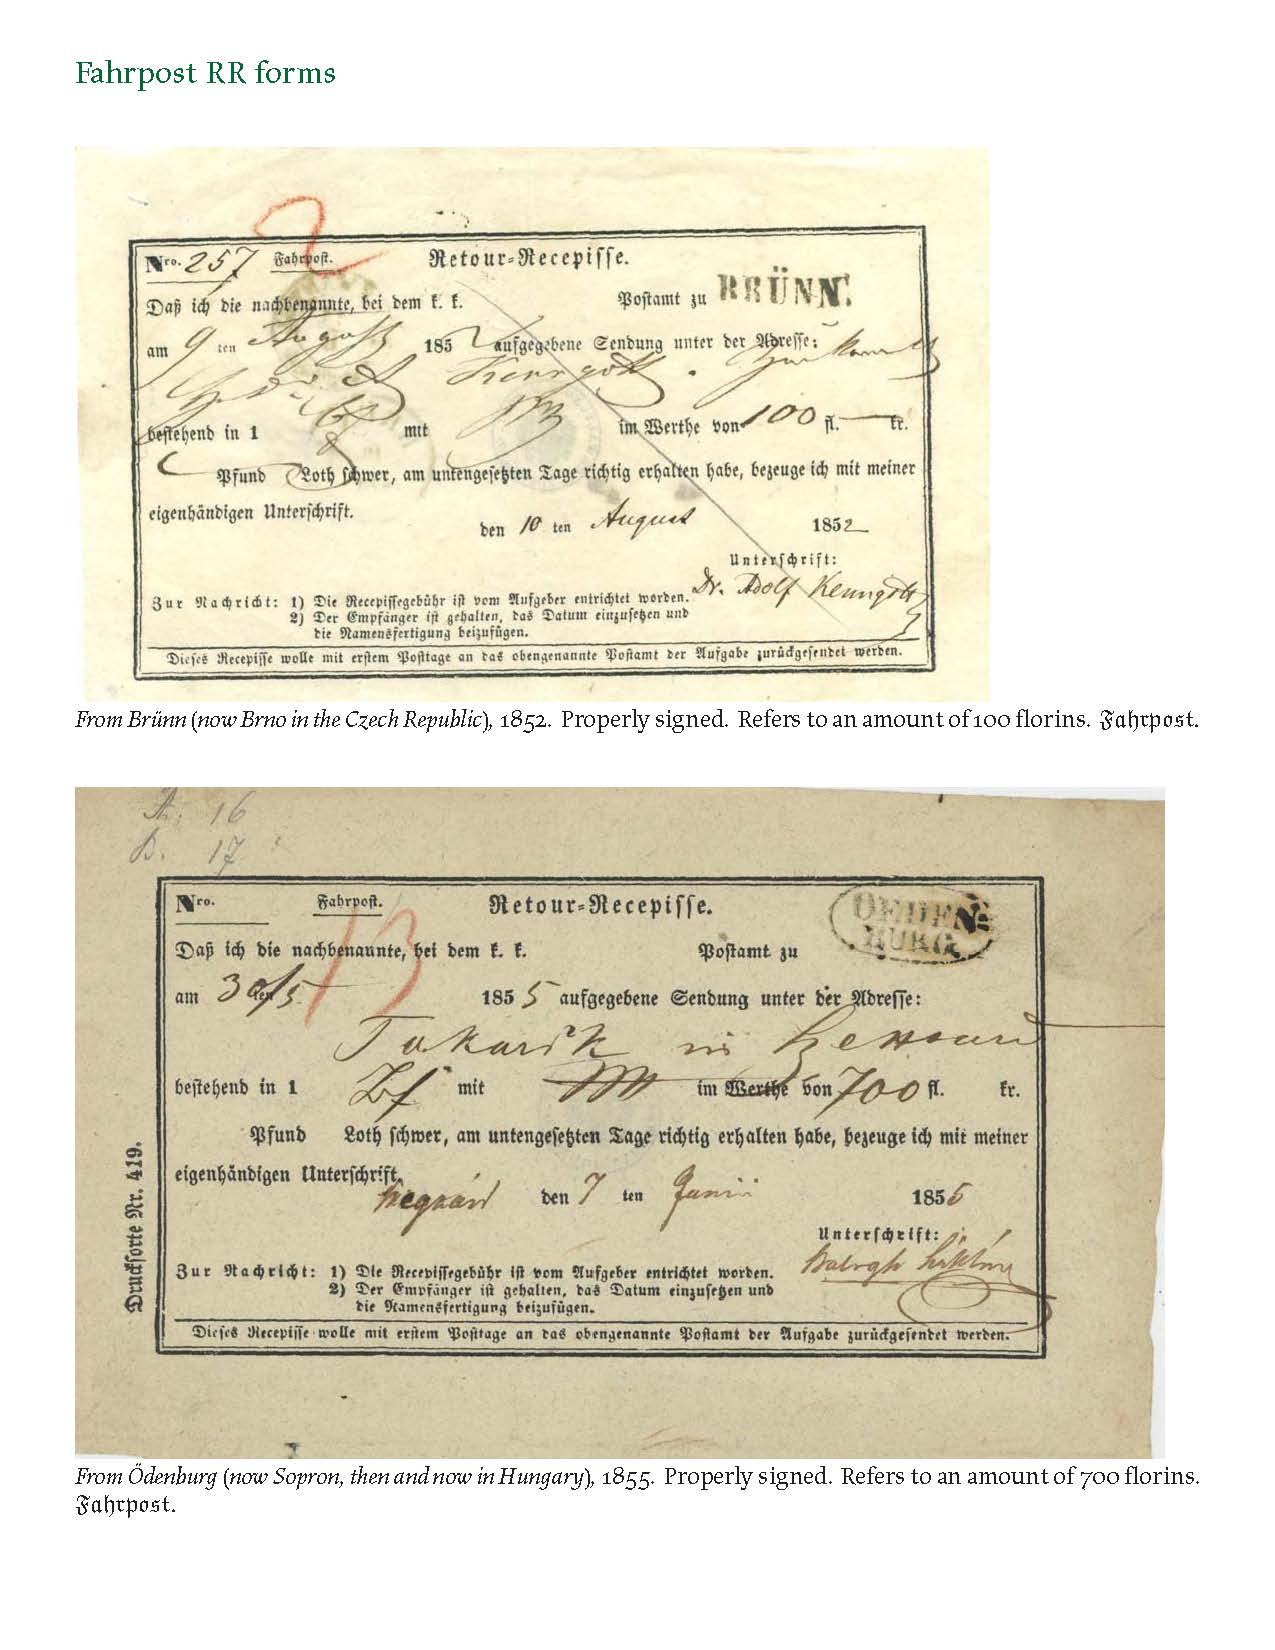 Fahrpost RR forms
Nro. 257 Fahrpost. Retour-Recepisse.
Daß ich die nachbenannte, bei dem k. k. Postamt zu BRÜNN.
am 9 ten August 1852 aufgegebene Sendung unter der Adresse:
Kenngott
bestehend in 1 mit im Werthe von 100 fl. — kr.
Pfund Loth schwer, am untengesetzten Tage richtig erhalten habe, bezeuge ich mit meiner
eigenhändigen Unterschrift.
den 10 ten August 1852
Unterschrift:
Dr. Adolf Kenngott
Zur Nachricht: 1) Die Recepissegebühr ist vom Aufgeber entrichtet worden.
2) Der Empfänger ist gehalten, das Datum einzusetzen und
die Namensfertigung beizufügen.
Dieses Recepisse wolle mit erstem Posttage an das obengenannte Postamt der Aufgabe zurückgesendet werden.
From Brünn (now Brno in the Czech Republic), 1852. Properly signed. Refers to an amount of 100 florins. Fahrpost.
A. 16
B. 17
Nro. Fahrpost. Retour-Recepisse. OEDEN-
BURG.
Daß ich die nachbenannte, bei dem k. k. Postamt zu
am 30/5 ten 1855 aufgegebene Sendung unter der Adresse:
in
bestehend in 1 Bf mit im Werthe von 700 fl. kr.
Pfund Loth schwer, am untengesetzten Tage richtig erhalten habe, bezeuge ich mit meiner
eigenhändigen Unterschrift.
den 7 ten Junii 1855
Unterschrift:
Balogh
Zur Nachricht: 1) Die Recepissegebühr ist vom Aufgeber entrichtet worden.
2) Der Empfänger ist gehalten, das Datum einzusetzen und
die Namensfertigung beizufügen.
Dieses Recepisse wolle mit erstem Posttage an das obengenannte Postamt der Aufgabe zurückgesendet werden.
Drucksorte Nr. 419.
From Ödenburg (now Sopron, then and now in Hungary), 1855. Properly signed. Refers to an amount of 700 florins.
Fahrpost.